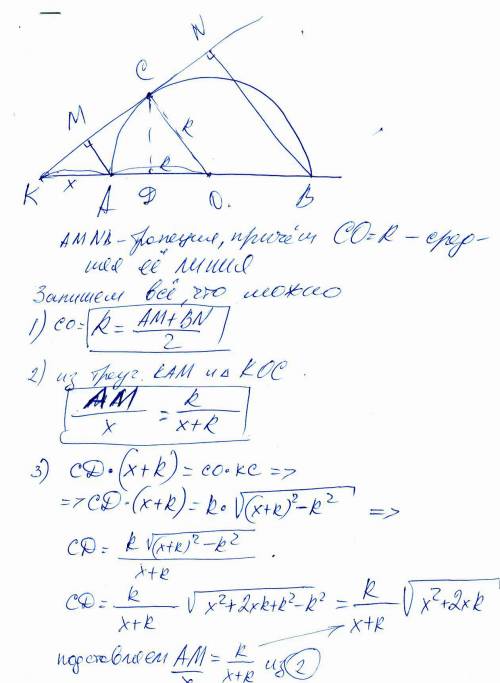 N
C
M
R
R
x
K
A
D
O.
B
AMNB - трапеция, причём CO=R - сред-
няя её линия
Запишем всё, что можно
1) CO = R = AM+BN / 2
2) из треуг. KAM и Δ KOC
AM / x = R / x+R
3) CD·(x+R) = CO·KC =>
=> CD·(x+R) = R·√(x+R)²-R² =>
CD = R√(x+R)²-R² / x+R .
CD = R / x+R √x²+2xR+R²-R² = R / x+R √x²+2xR
подставляем AM / x = R / x+R из 2